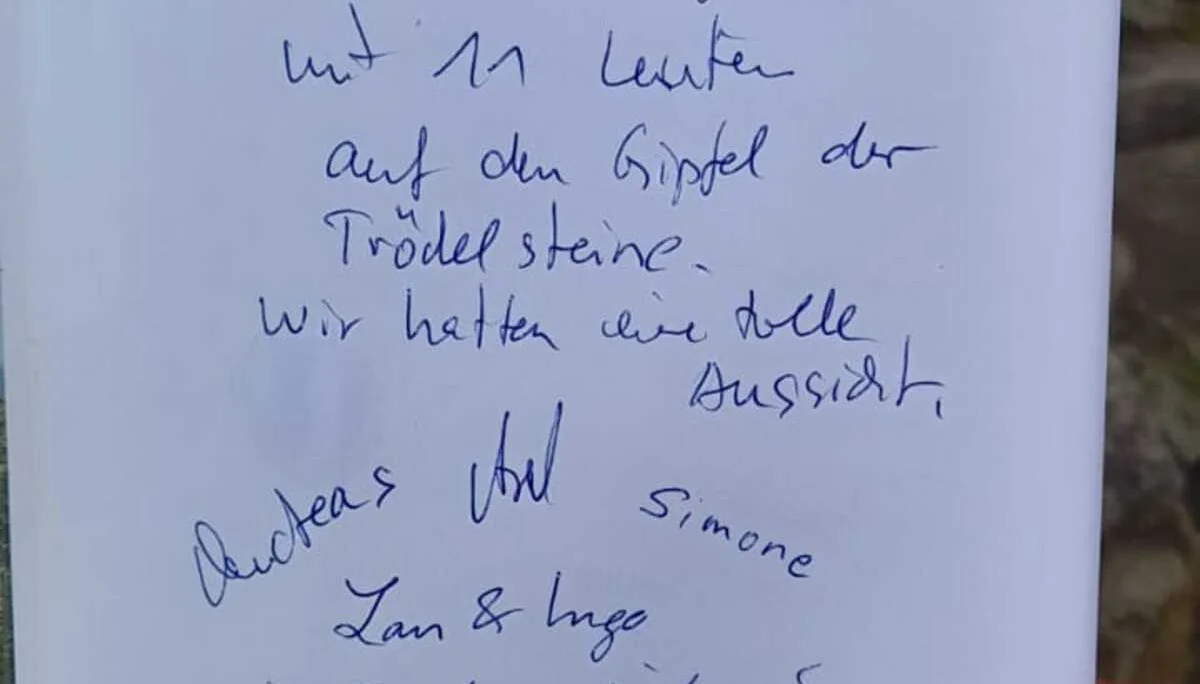 mit 11 Leuten
auf den Gipfel der
Trödelsteine.
Wir hatten eine tolle
Aussicht.
Andreas Axel Simone
& Ingo